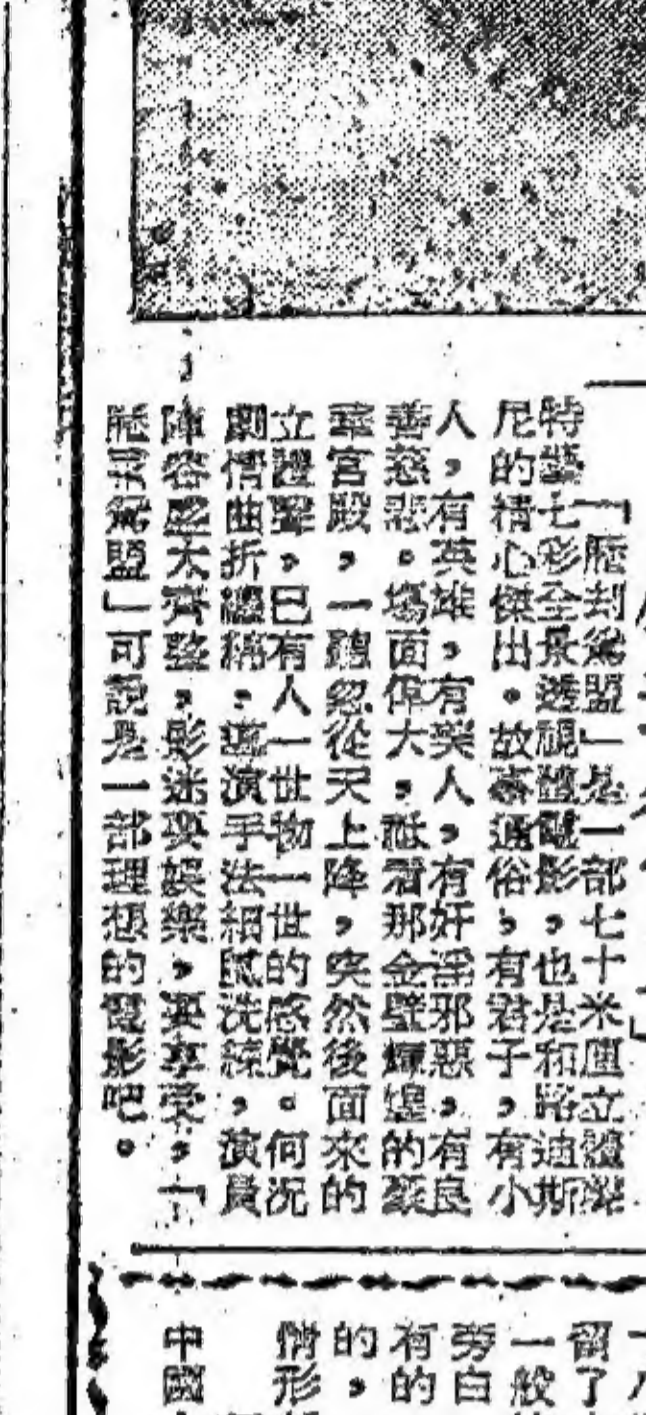 「脂刲鴛盟」是一部七十米厘立體聲
特藝七彩全景透視體電影，也是和路迪斯
尼的精心傑出。故事通俗，有君子，有小
人，有英雄，有美人，有奸淫邪惡，有良
善慈悲。塲面偉大，祗看那金壁輝煌的豪
華宮殿，一鶴忽從天上降，突然後面來的
立體聲，已有人一世物一世的感覺。何況
劇情曲折纏綿，導演手法細膩洗練，演員
陣容盛大齊整，影迷要娛樂，要享受，「
脂刲鴛盟」可說是一部理想的電影吧。
一八
留了
一般
旁白
有的
的，
情形
中國